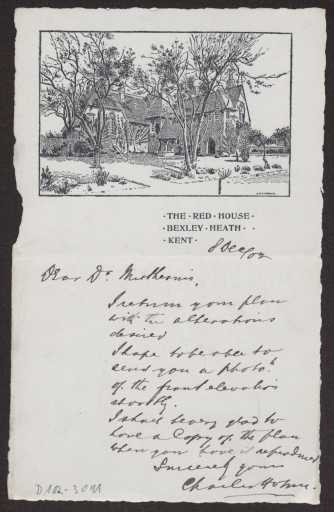 ·THE·RED·HOUSE·
·BEXLEY·HEATH· ·
·KENT·
8 Dec/02
Dear Dr. Muthesius,
I return your plan
with the alterations
desired
I hope to be able to
send you a photo:
of the front elevation
shortly.
I shall be very glad to
have a Copy of the plan
when you have it reproduced
Sincerely yours
Charles Holme.
D 102-3091